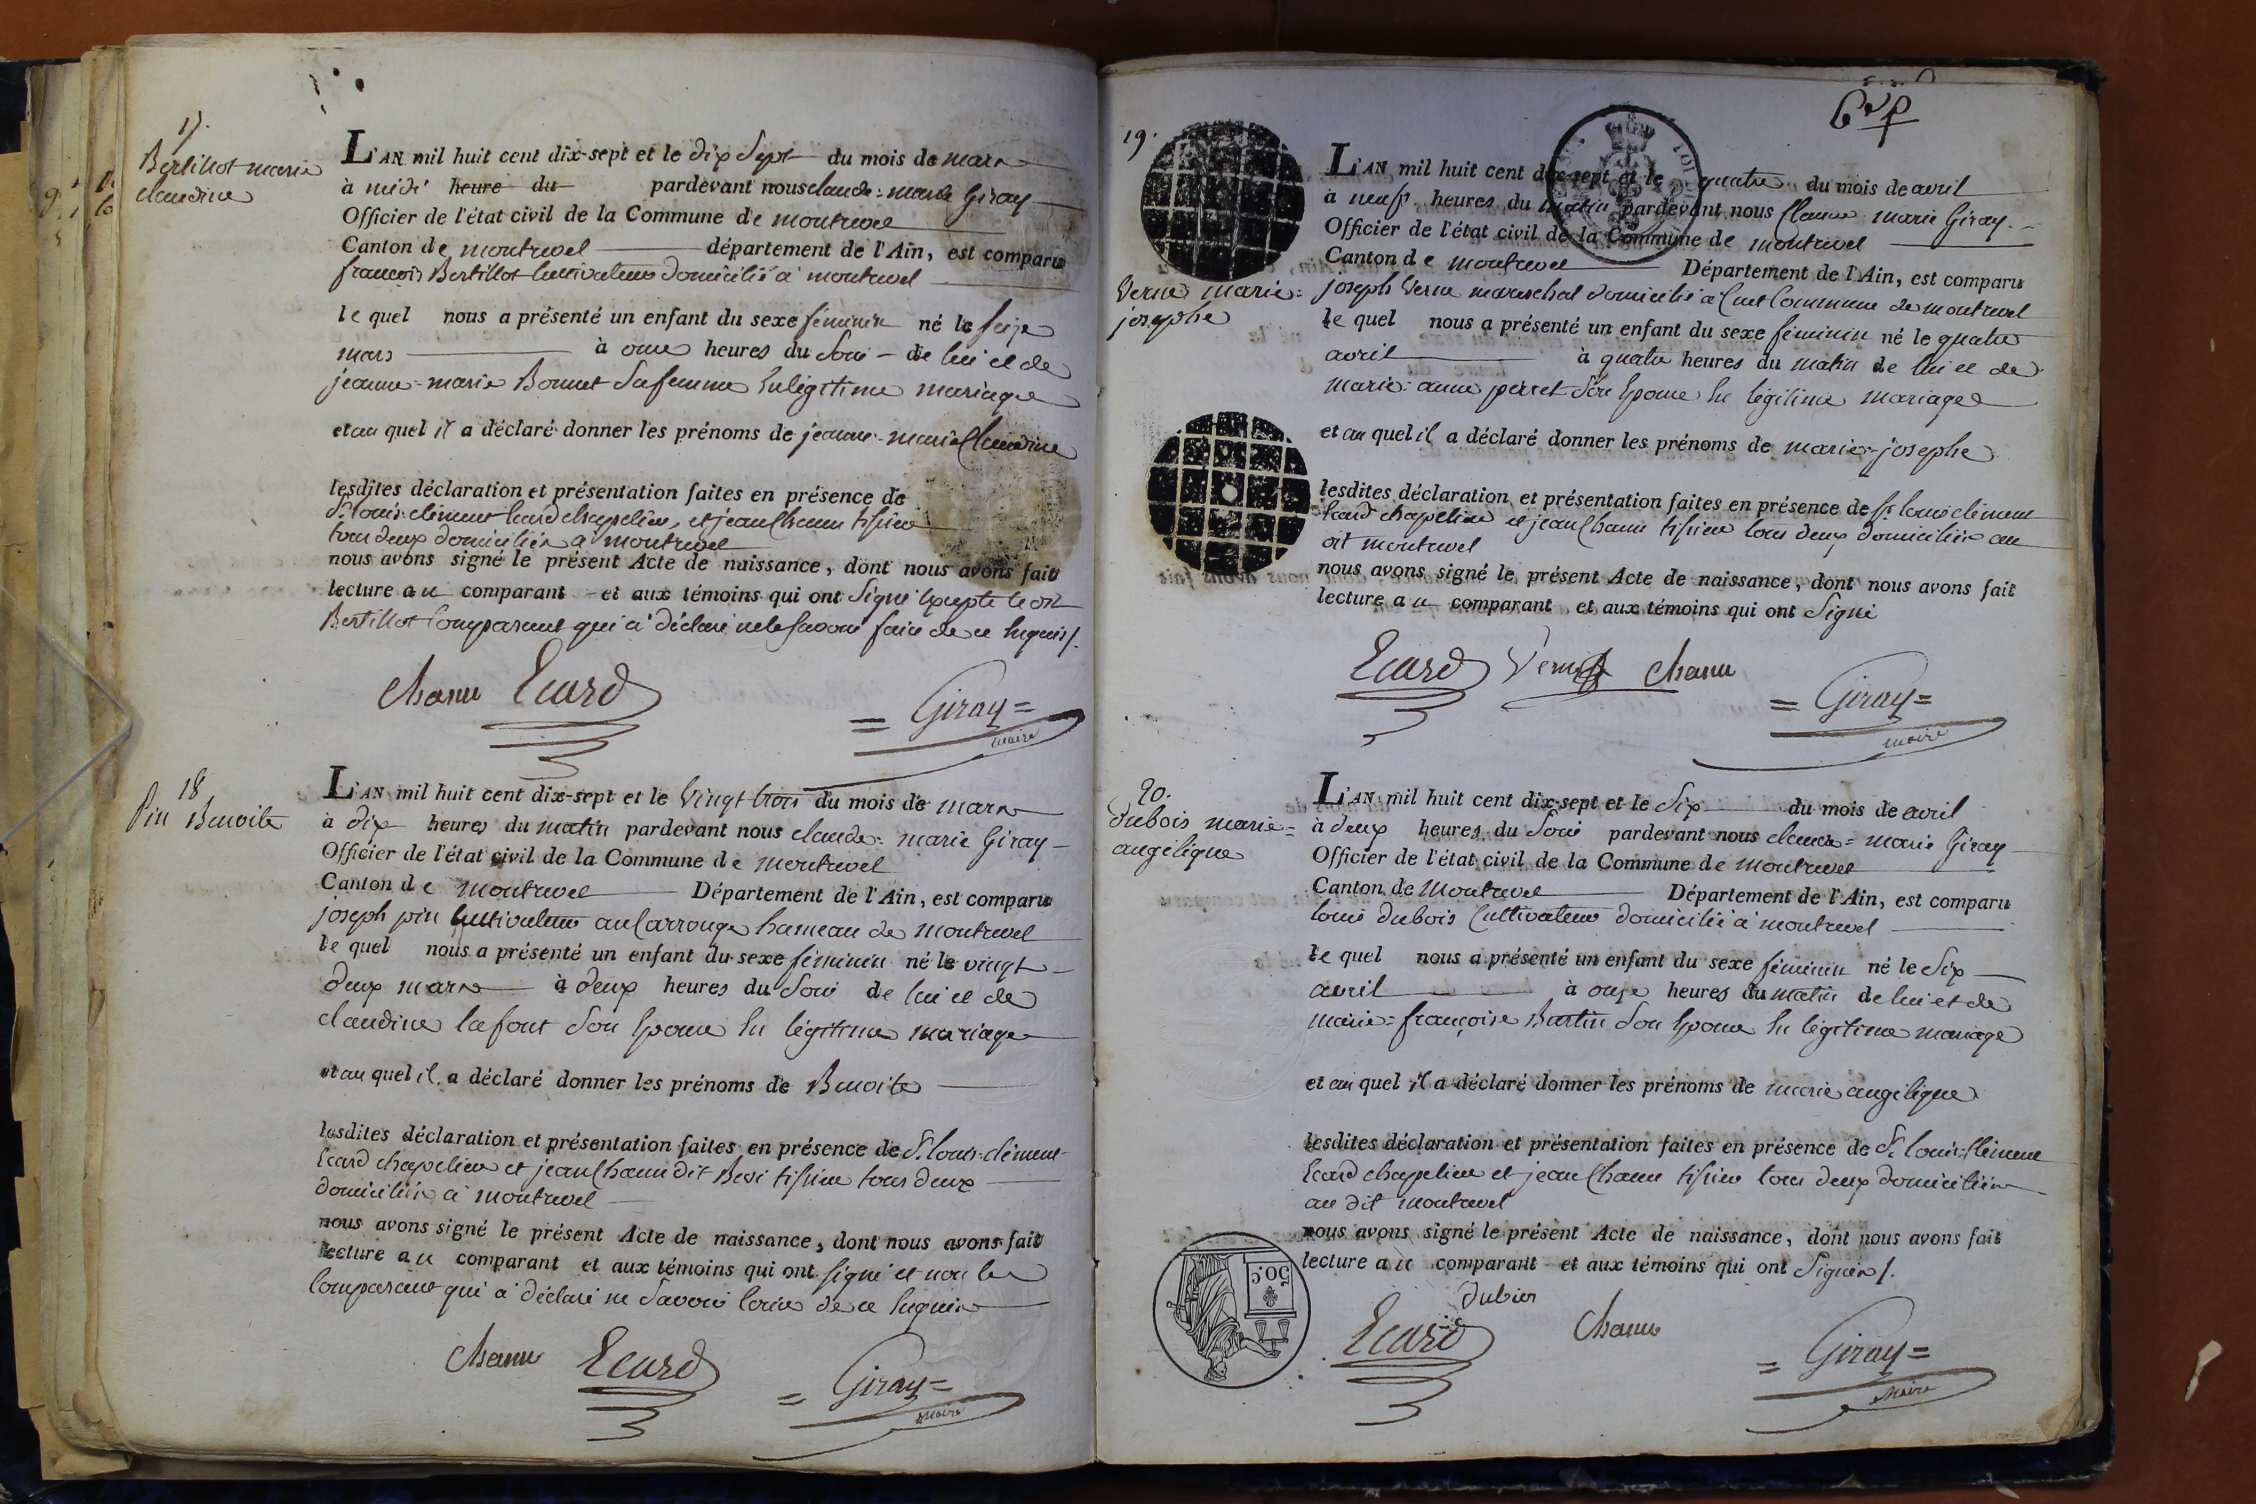 17.
Bertillot marie
claudine
L'AN mil huit cent dix-sept et le dix sept du mois de mars
à midi heure du pardevant nous claude = marie Giray
Officier de l'état civil de la Commune de montrevel
Canton de montrevel département de l'Ain, est comparu
françois Bertillot Cultivateur domicilié à montrevel
le quel nous a présenté un enfant du sexe féminin né le seize
mars à onze heures du Soir de lui et de
jeanne = marie Bonnet Sa femme En légitime mariage
et au quel il a déclaré donner les prénoms de jeanne = marie Claudine
lesdites déclaration et présentation faites en présence de
Sr. louis clément Ecard chapelier, et jean Chanu tissier
tous deux domiciliés a montrevel
nous avons signé le présent Acte de naissance, dont nous avons fait
lecture au comparant et aux témoins qui ont Signé Excepté le dit
Bertillot Comparant qui a déclaré ne le savoir faire de ce Enquis /.
Chanu Ecard
= Giray =
maire
18
Pin Benoite
L'AN mil huit cent dix-sept et le Vingt trois du mois de mars
à dix heures du matin pardevant nous claude = marie Giray
Officier de l'état civil de la Commune de montrevel
Canton de montrevel Département de l'Ain, est comparu
joseph pin Cultivateur au Carrouge hameau de montrevel
le quel nous a présenté un enfant du sexe féminin né le vingt
deux mars à deux heures du Soir de lui et de
claudine lafont Son Epouse En légitime mariage
et au quel il a déclaré donner les prénoms de Benoite
lesdites déclaration et présentation faites en présence de Sr. louis = clément
Ecard chapelier et jean Chanu dit tissier tous deux
domiciliés a montrevel
nous avons signé le présent Acte de naissance, dont nous avons fait
lecture au comparant et aux témoins qui ont signé et non le
Comparant qui a déclaré ne Savoir de ce Enquis
Chanu Ecard
= Giray =
maire
19.
Verne marie =
josephe
L'AN mil huit cent dix-sept et le quatre du mois de avril
à neuf heures du matin pardevant nous Claude marie Giray
Officier de l'état civil de la Commune de montrevel
Canton de montrevel Département de l'Ain, est comparu
joseph Verne mareschal domicilié à Cuet Commune de montrevel
le quel nous a présenté un enfant du sexe féminin né le quatre
avril à quatre heures du matin de lui et de
marie = anne perret Son Epouse En légitime mariage
et au quel il a déclaré donner les prénoms de marie = josephe
lesdites déclaration et présentation faites en présence de Sr. louis clément
Ecard chapelier et jean Chanu tissier tous deux domiciliés au
dit montrevel
nous avons signé le présent Acte de naissance, dont nous avons fait
lecture au comparant et aux témoins qui ont Signé
Ecard Verne Chanu
= Giray =
maire
20.
Dubois marie =
angélique
L'AN mil huit cent dix-sept et le Six du mois de avril
à deux heures du Soir pardevant nous claude = marie Giray
Officier de l'état civil de la Commune de montrevel
Canton de Montrevel Département de l'Ain, est comparu
louis dubois Cultivateur domicilié à montrevel
le quel nous a présenté un enfant du sexe féminin né le Six
avril à onze heures du matin de lui et de
marie = françoise Burtin Son Epouse En légitime mariage
et au quel il a déclaré donner les prénoms de marie angélique
lesdites déclaration et présentation faites en présence de Sr. louis = Clément
Ecard chapelier et jean Chanu tissier tous deux domiciliés
au dit montrevel
nous avons signé le présent Acte de naissance, dont nous avons fait
lecture au comparant et aux témoins qui ont Signés /.
50c.
dubois
Ecard Chanu
= Giray =
maire